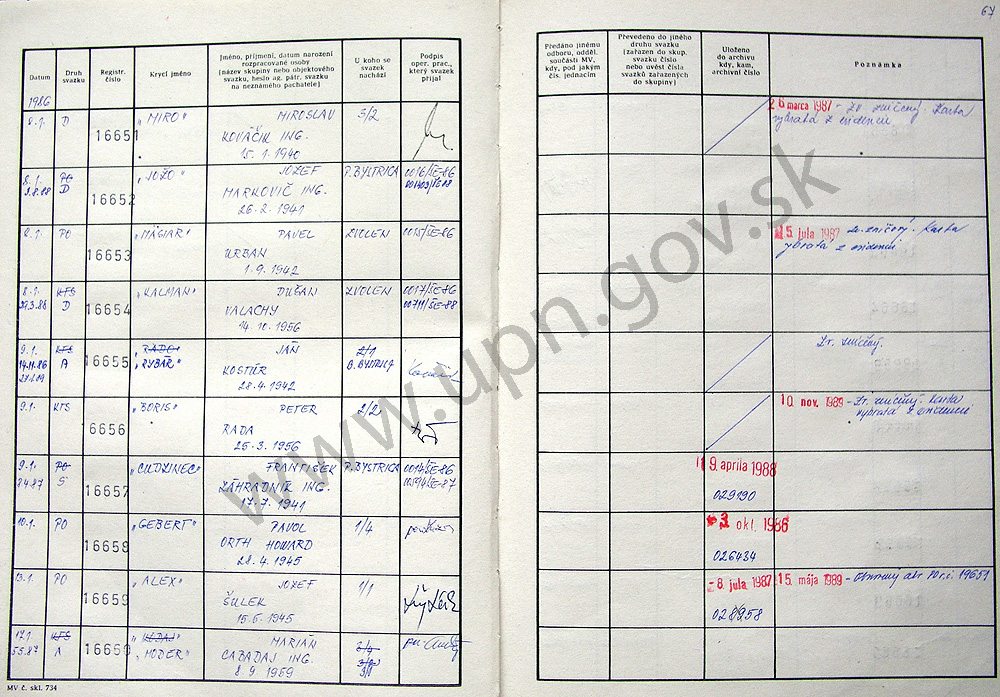 67
Datum
Druh svazku
Registr. číslo
Krycí jméno
Jméno, příjmení, datum narození
rozpracované osoby
(název skupiny nebo objektového
svazku, heslo ag. pátr. svazku
na neznámého pachatele)
U koho se
svazek
nachází
Podpis
oper. prac.,
který svazek
přijal
Předáno jinému
odboru, odděl.
součásti MV,
kdy, pod jakým
čj. jednacím
Převedeno do jiného
druhu svazku
(zařazen do skup.
svazku číslo
nebo uvést čísla
svazků zařazených
do skupiny)
Uloženo
do archivu
kdy, kam,
archivní číslo
Poznámka
1986
8.1. D 16651 „MIRO" MIROSLAV 3/2
KOVÁČIK ING.
15.1.1940
26 marca 1987 - Zv. zničený. Karta
vybratá z evidencie
8.1. PO 16652 „JOŽO" JOZEF P.BYSTRICA 0016/ŠE-86
D
MARKOVIČ ING.
26.2.1941
8.1. PO 16653 „MAGIAR" PAVEL ZVOLEN 0015/ŠE-86
URBAN
1.9.1942
15 júla 1987 Zv. zničený. Karta
vybratá z evidencie
8.1. KTS 16654 „KALMAN" DUŠAN ZVOLEN 0017/ŠE-86
29.3.88 D 00711/ŠE-88
VALACHY
14.10.1956
9.1. KTS 16655 „RADO" JÁN 2/1
14.11.86 A „RYBÁR" B.BYSTRICA
KOSTÚR
28.4.1942
Zv. zničený
9.1. KTS 16656 „BORIS" PETER 2/2
RADA
25.3.1956
10. nov. 1989 - Zv. zničený. Karta
vybratá z evidencie
9.1. PO 16657 „CUDZINEC" FRANTIŠEK P.BYSTRICA 0014/ŠE-86
S
ZÁHRADNÍK ING.
17.7.1941
19. apríla 1988
029190
10.1. PO 16658 „GEBERT" PAVOL 1/4
ORTH HOWARD
28.4.1945
3. okt. 1986
026434
13.1. PO 16659 „ALEX" JOZEF 1/1
ŠULEK
15.6.1945
- 8. júla 1987
028958
15. mája 1989 - Obnovený ako PO r.č. 19651
KTS 16660
A „MODER" MARIÁN
CABADAJ ING.
8.9.1959
3/1
MV č. skl. 734
www.upn.gov.sk